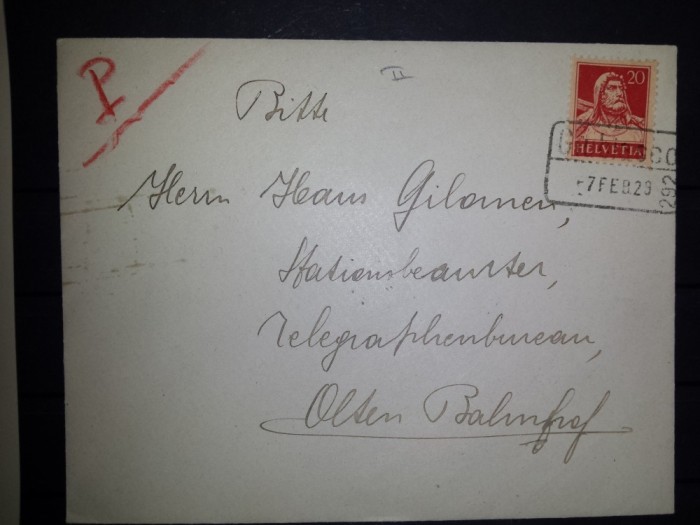 P
II
Bitte
20
HELVETIA
-7 FEB. 29
292
Herrn Hans Gilomen,
Stationsbeamter,
Telegraphenbureau,
Olten Bahnhof